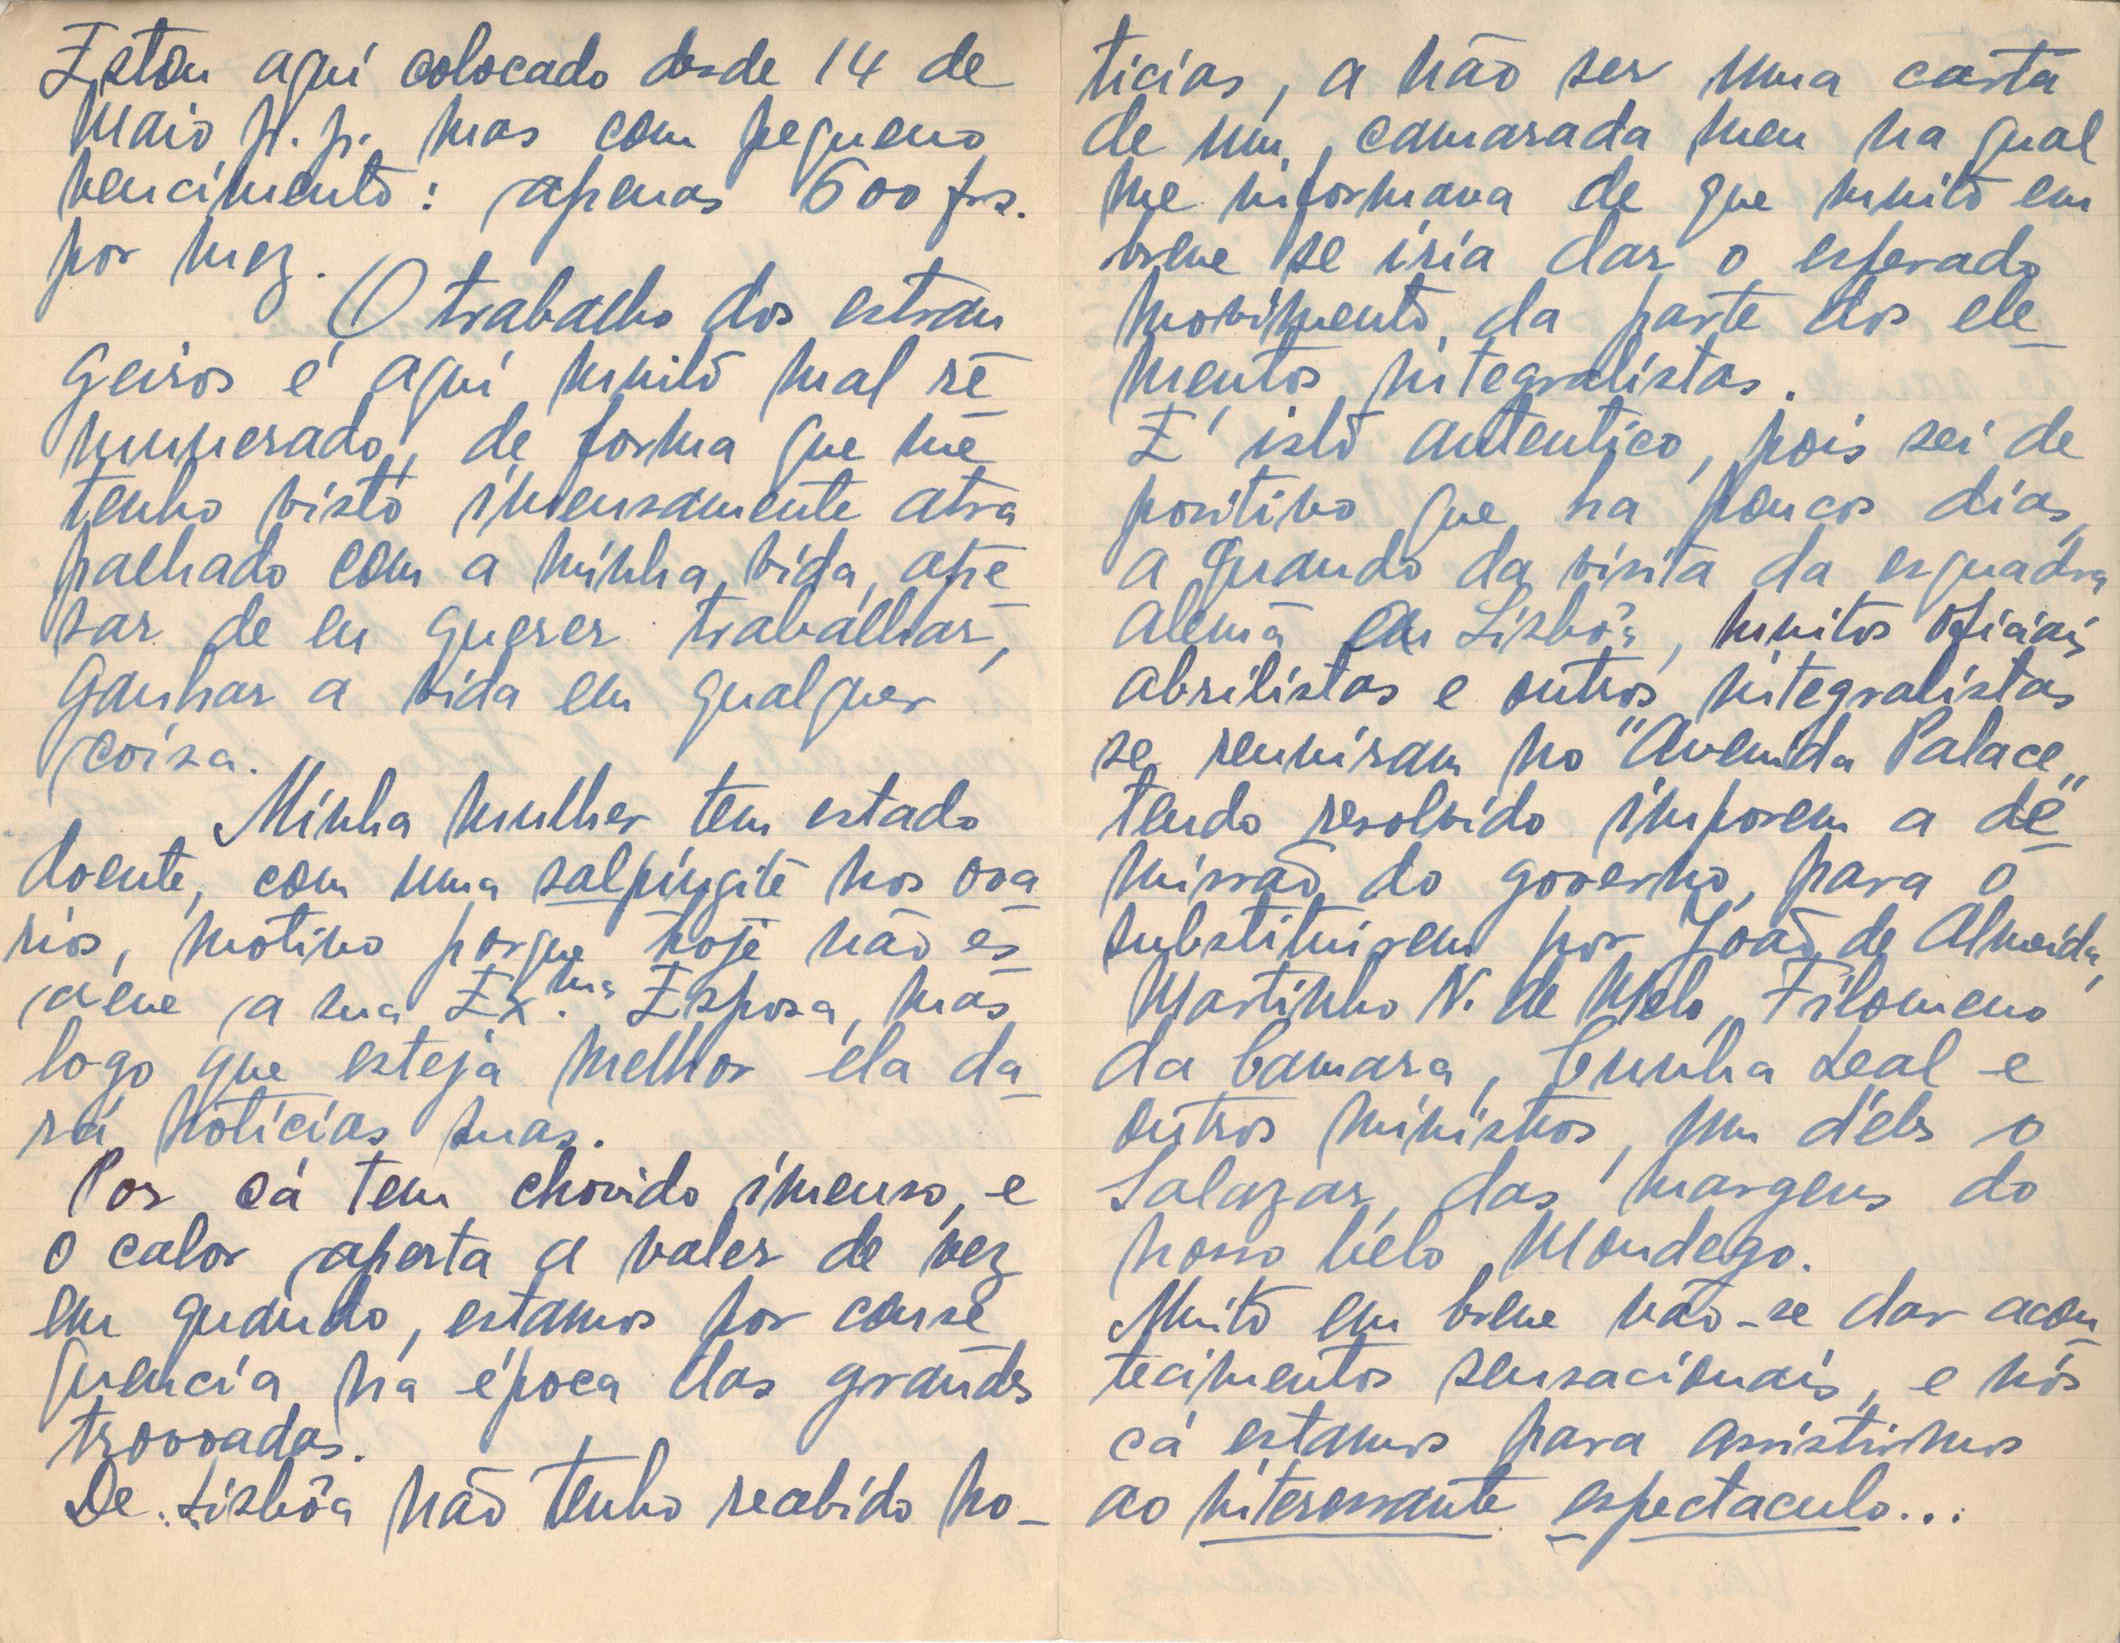 Estou aqui colocado desde 14 de
Maio p. p. mas com pequeno
vencimento: apenas 600 frs.
por mez.
O trabalho dos estran
geiros é aqui muito mal re
munerado, de forma que me
tenho visto imensamente atra
palhado com a minha vida, ape
sar de eu querer trabalhar,
ganhar a vida em qualquer
coisa.
Minha mulher tem estado
doente, com uma salpingite nos ova
rios, motivo porque hoje não es-
creve a sua Ex.ma Esposa, mas
logo que esteja melhor ela da-
rá noticias suas.
Por cá tem chovido imenso, e
o calor aperta a valer de vez
em quando, estamos por conse
quencia na época das grandes
trovoadas.
De Lisbôa não tenho recebido no-
ticias, a não ser uma carta
de um camarada meu na qual
me informava de que muito em
breve se iria dar o esperado
movimento da parte dos ele-
mentos integralistas.
E' isto autentico, pois sei de
positivo que ha poucos dias,
a quando da visita da esquadra
Alemã em Lisbôa, muitos oficiais
abrilistas e outros integralistas
se reuniram no "Avenida Palace"
tendo resolvido imporem a de-
missão do governo, para o
substituirem por João de Almeida,
Martinho N. de Melo, Filomeno
da Camara, Cunha Leal e
outros ministros, um d'eles o
Salazar, das margens do
nosso belo Mondego.
Muito em breve vão-se dar acon-
tecimentos sensacionais, e nós
cá estamos para assistirmos
ao interessante espectaculo...